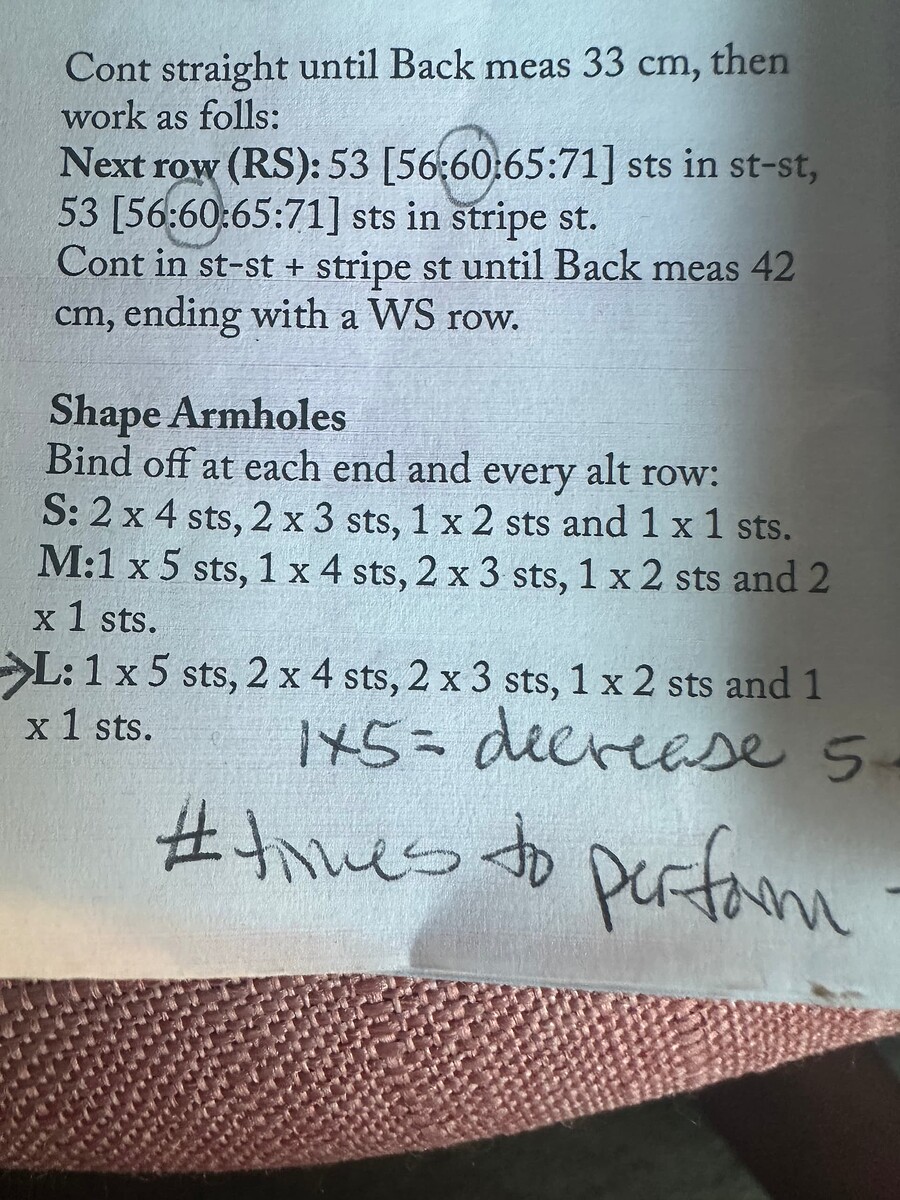 Cont straight until Back meas 33 cm, then
work as folls:
Next row (RS): 53 [56:60:65:71] sts in st-st,
53 [56:60:65:71] sts in stripe st.
Cont in st-st + stripe st until Back meas 42
cm, ending with a WS row.
Shape Armholes
Bind off at each end and every alt row:
S: 2 x 4 sts, 2 x 3 sts, 1 x 2 sts and 1 x 1 sts.
M:1 x 5 sts, 1 x 4 sts, 2 x 3 sts, 1 x 2 sts and 2
x 1 sts.
→L: 1 x 5 sts, 2 x 4 sts, 2 x 3 sts, 1 x 2 sts and 1
x 1 sts.
1x5= decrease 5
# times to perform